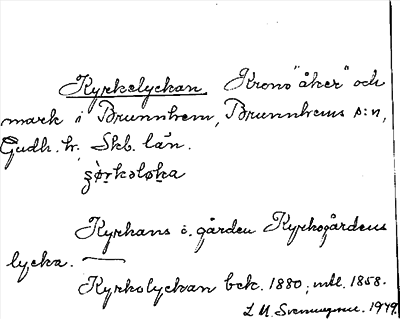 Kyrkelyckan, Krono "åker" och
mark i Brunnhem, Brunnhems s:n,
Gudh. hr. Skb. län.
Kyrkans o. gården Kyrkogårdens
lycka.
Kyrkolyckan bek. 1880; mtl. 1858.
1949.